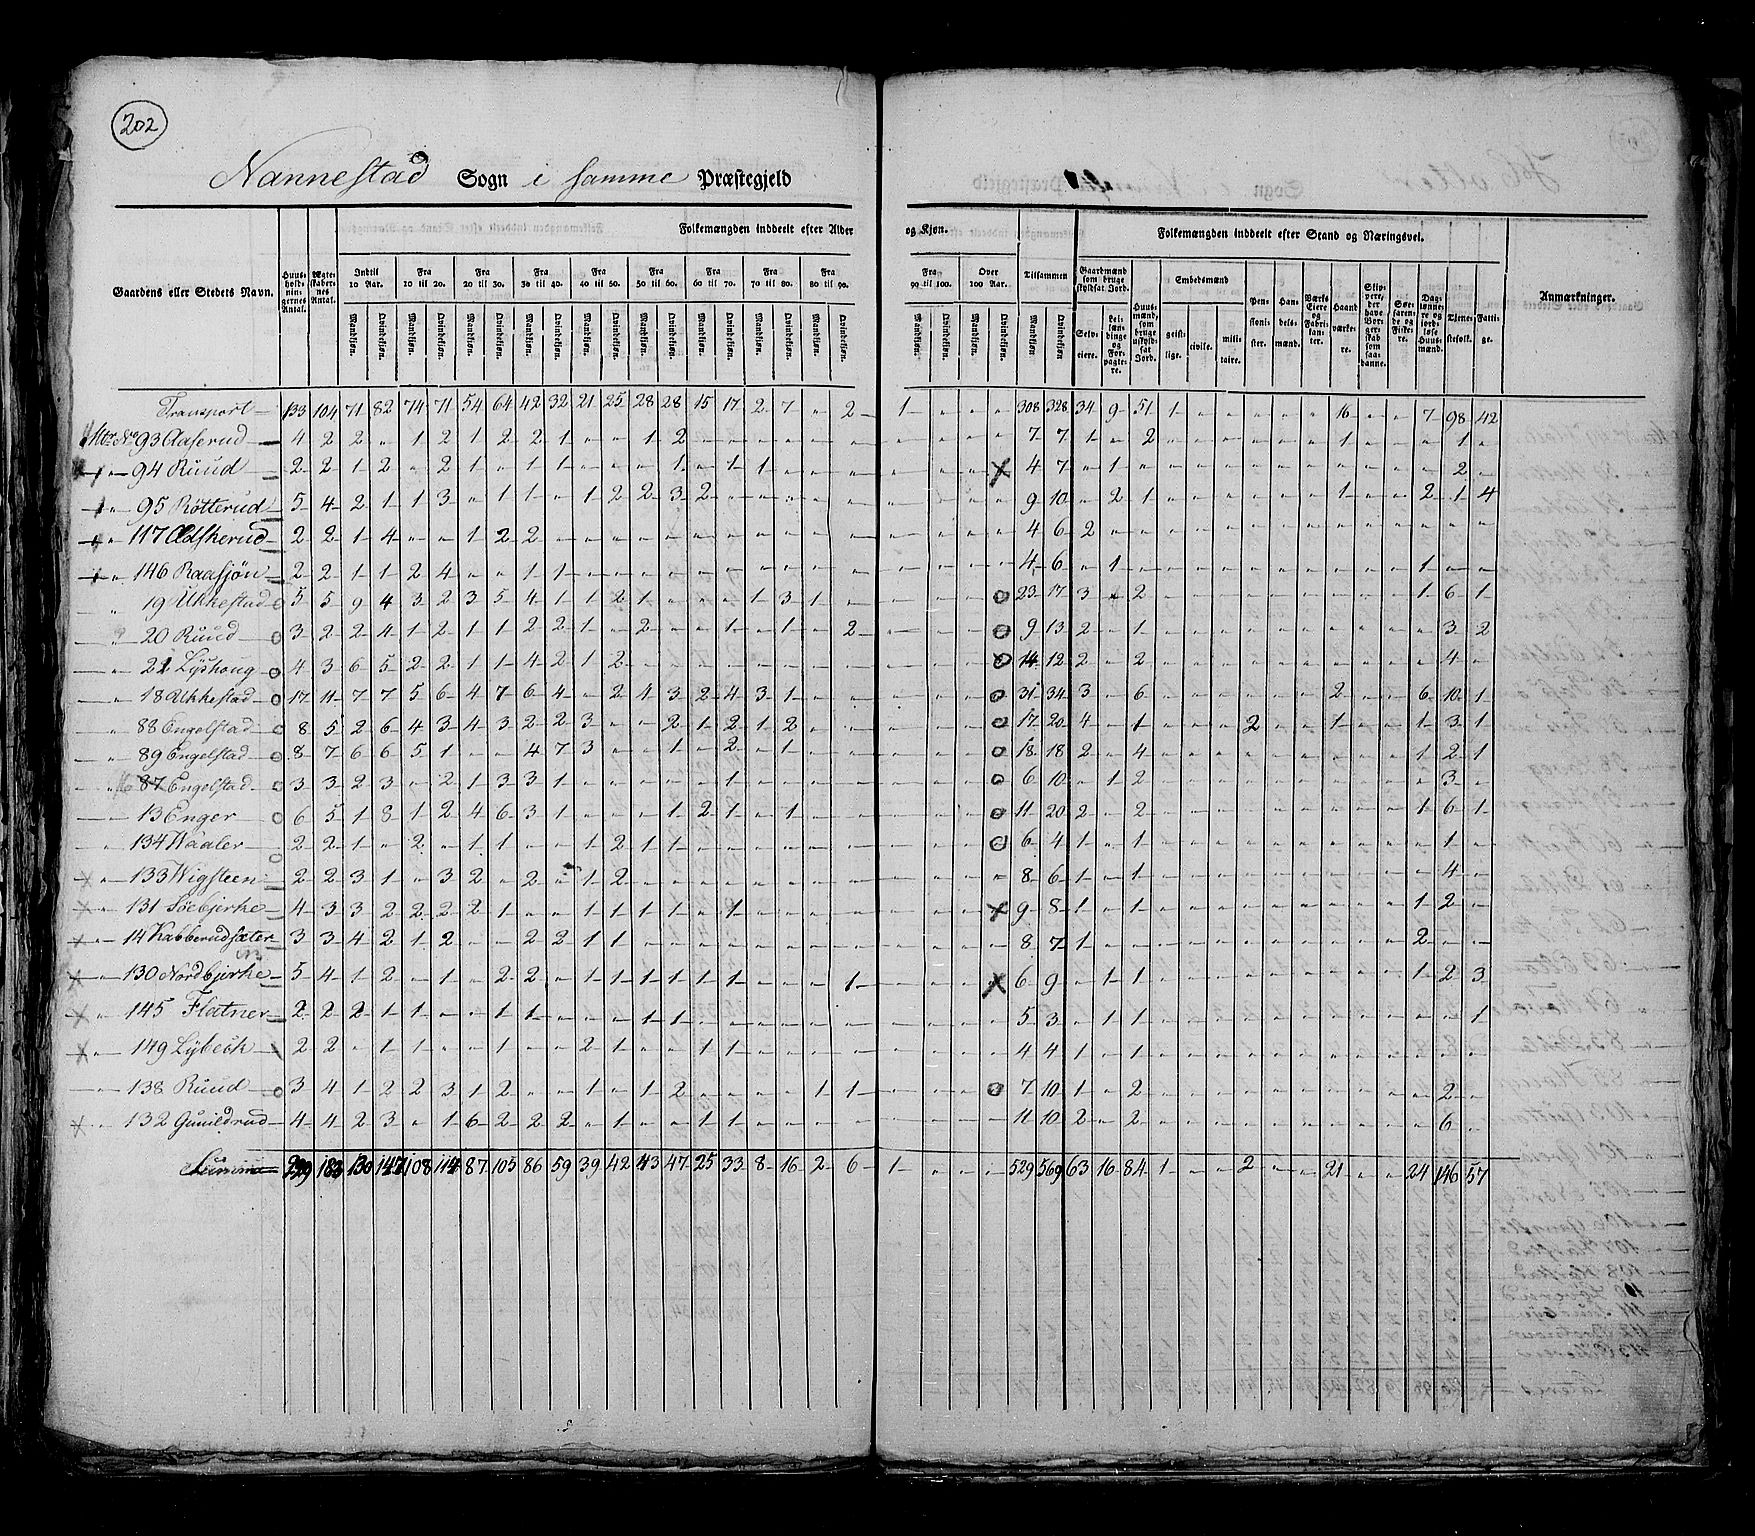 202
Nannestad Sogn i samme Præstegjeld
Folkemængden inddeelt efter Alder og Kjøn. Folkemængden inddeelt efter Stand og Næringsvei.
Gaardens eller Stedets Navn. Huusholdningernes Antal. Ægteskabernes Antal. Indtil 10 Aar. Fra 10 til 20. Fra 20 til 30. Fra 30 til 40. Fra 40 til 50. Fra 50 til 60. Fra 60 til 70. Fra 70 til 80. Fra 80 til 90. Fra 90 til 100. Over 100 Aar. Tilsammen Gaardmænd som bruge skyldsat Jord. Huusmænd, som bruge uskyldsat Jord. Embedsmænd Pensionister. Handelsmænd. Værks Eiere og Fabrikanter. Haandværkere. Skippere, der have Borgerskab som saadanne. Søefarende og Fisker. Daglønnere og jordløse Huusmænd. Tjenestefolk. Fattige. Anmærkninger.
Mandkjøn. Qvindekjøn. Mandkjøn. Qvindekjøn. Mandkjøn. Qvindekjøn. Mandkjøn. Qvindekjøn. Mandkjøn. Qvindekjøn. Mandkjøn. Qvindekjøn. Mandkjøn. Qvindekjøn. Mandkjøn. Qvindekjøn. Mandkjøn. Qvindekjøn. Mandkjøn. Qvindekjøn. Mandkjøn. Qvindekjøn. Mandkjøn. Qvindekjøn. Selveiere. Leilændinge og Forpagtere. geistlige. civile. militaire.
Transport 133 104 71 82 74 71 54 64 42 32 21 25 28 28 15 17 2 7 " 2 1 " " " 308 328 34 9 51 1 " " " " " 16 " " 7 98 42
No 93 Aaserud 4 2 2 " 1 2 1 2 2 1 " " 1 2 " " " " " " " " " " 7 7 1 " 2 " " " " " " 1 " " " 1 "
94 Ruud 2 2 1 2 " 2 1 " 1 1 " " " 1 " 1 1 " " " " " " 4 7 " 1 " " " " " " " " " " " 2 "
95 Røtterud 5 4 2 1 1 3 " 1 1 " 1 2 2 3 2 " " " " " " " " " 9 10 " 2 1 " " " " " " 1 " " 2 1 4
117 Adskerud 2 2 1 4 " " 1 2 2 " " " " " " " " " " " " " " " 4 6 2 " " " " " " " " " " " " " "
146 Raasjøn 2 2 1 1 2 4 " " 1 1 " " " " " " " " " " " " " " 4 6 " 1 " " " " " " " " " " 1 " "
19 Ukkestad 5 5 9 4 3 2 3 5 4 1 1 2 1 " " " 1 3 1 " " " " 23 17 3 " 2 " " " " " " " " " 1 6 1
20 Ruud 3 2 2 4 1 2 1 1 2 2 1 " 2 " " 1 " 1 " 2 " " " 9 13 2 " 1 " " " " " " " " " " 3 2
21 Lyshoug 4 3 6 5 2 2 1 1 4 2 1 2 " " " " " " " " " " " 14 12 2 " 2 " " " " " " " " " " 4 "
18 Ukkestad 17 11 7 7 5 6 4 7 6 4 " 2 4 3 2 4 3 1 " " " " " 31 34 3 " 6 " " " " " " 2 " " 6 10 1
88 Engelstad 8 5 2 6 4 3 4 3 2 2 3 " " 2 1 2 1 2 " " " " " 17 20 4 " 1 " " " 2 " " 1 " " 1 3 1
89 Engelstad 8 7 6 6 5 1 " " 4 7 3 " " 1 " 2 " 1 " " " " " 18 18 2 " 4 " " " " " " " " " 1 2 1
87 Engelstad 3 3 2 3 " 2 1 3 3 1 " " " " " 1 " " " " " " " 6 10 " 1 2 " " " " " " " " " " 3 "
13 Enger 6 5 1 8 1 2 4 6 3 1 " " " 1 2 1 " 1 " " " " " 11 20 2 " 2 " " " " " " " " " 1 6 1
134 Waaler 2 2 1 " 2 " 1 1 " " 1 2 1 1 " " " " " " " " " 6 4 1 " 1 " " " " " " " " " " 1 "
133 Wigsteen 2 2 3 1 " 3 2 " 2 " 1 2 " " " " " " " " " " " 8 6 1 " 1 " " " " " " " " " " 4 "
131 Søebjerke 4 3 3 2 2 2 2 1 " " 1 1 1 1 " 1 " " " " " " " 9 8 1 " 1 " " " " " " " " " 1 2 "
14 Kabberudsæter 3 3 4 2 1 2 " " 2 2 1 1 " " " " " " " " " " " 8 7 1 " " " " " " " " " " " 2 " "
130 Nordbjerke 5 4 1 2 " 1 " 2 2 " 1 1 1 1 1 1 " " " 1 " " " 6 9 " 1 1 " " " " " " " " " 1 2 3
145 Flatner 2 2 2 1 1 " " 1 1 " " " 1 1 " " " " " " " " " 5 3 " 1 1 " " " " " " " " " " " 1
149 Lybeck 2 2 " 1 1 " " 1 " " 2 1 " " 1 1 " " " " " " " 4 4 1 " 1 " " " " " " " " " " " "
138 Ruud 3 4 1 2 2 3 1 2 " " 1 " 1 2 " " " " 1 1 " " " 7 10 1 " 2 " " " " " " " " " " 2 "
132 Gunildrud 4 4 2 3 " 1 6 2 2 2 " 1 " " 1 1 " " " " " " " 11 10 2 " 2 " " " " " " " " " " 6 "
Summa 229 183 130 147 108 114 87 105 86 59 39 42 43 47 25 33 8 16 2 6 1 " " " 529 569 63 16 84 1 " " 2 " " 21 " " 24 146 57